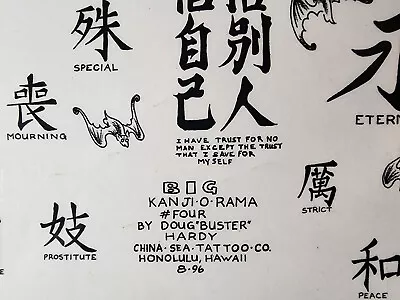 殊
SPECIAL
喪
MOURNING
信别
自人
己
I HAVE TRUST FOR NO
MAN EXCEPT THE TRUST
THAT I SAVE FOR
MYSELF
ETERN
厲
STRICT
妓
PROSTITUTE
BIG
KANJI·O·RAMA
#FOUR
BY DOUG "BUSTER"
HARDY
CHINA·SEA·TATTOO·CO.
HONOLULU, HAWAII
8·96
和
PEACE